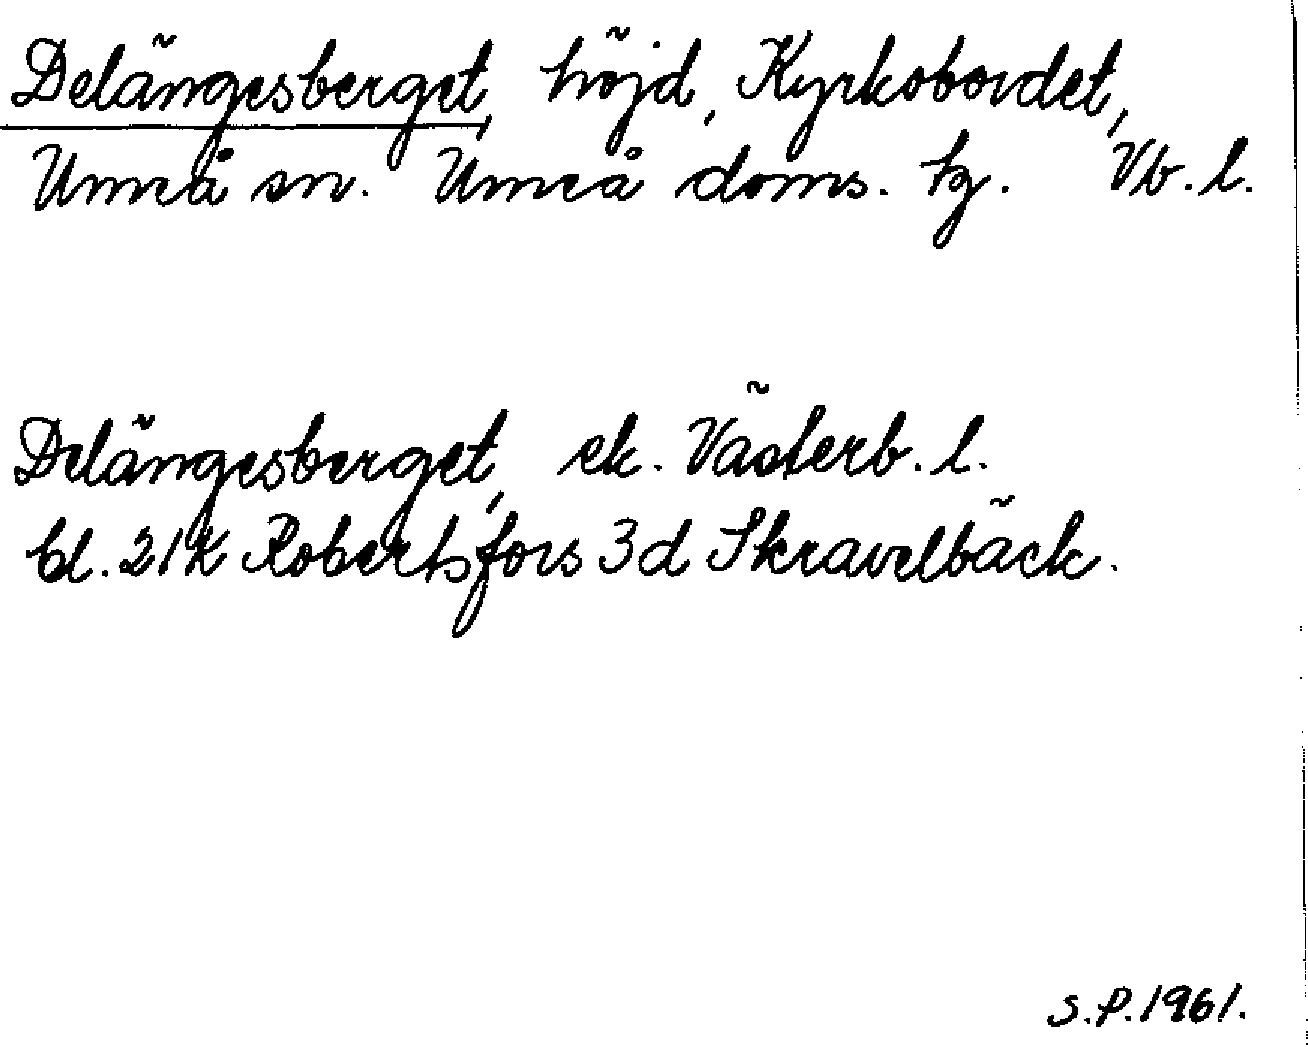 Delängesberget, höjd, Kyrkobordet,
Umeå sn. Umeå doms. tg. Vb. l.
Delängesberget, ek. Västerb. l.
bl. 21K Robertsfors 3d Skravelbäck.
S.P. 1961.